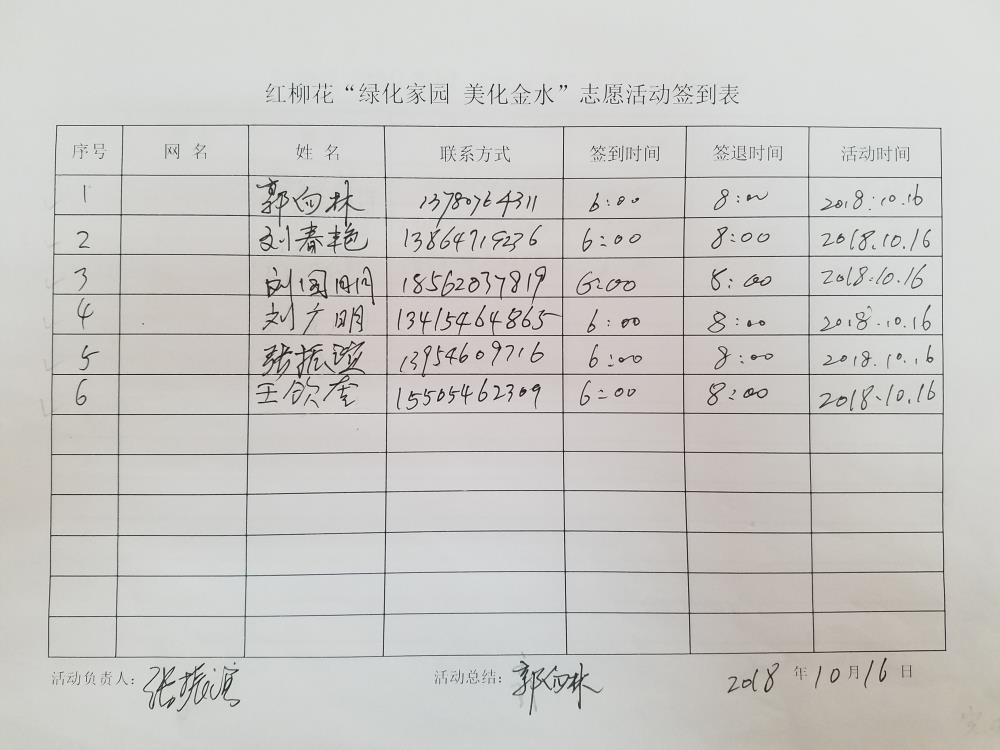 红柳花“绿化家园 美化金水”志愿活动签到表
序号 网 名 姓 名 联系方式 签到时间 签退时间 活动时间
1 郭向林 13780764311 6:00 8:00 2018.10.16
2 刘春艳 13864719236 6:00 8:00 2018.10.16
3 刘国明 18562037819 6:00 8:00 2018.10.16
4 刘广明 13415464865 6:00 8:00 2018.10.16
5 张振滨 13954609716 6:00 8:00 2018.10.16
6 王钦奎 15505462309 6:00 8:00 2018.10.16
活动负责人: 张振滨 活动总结: 郭向林 2018 年 10 月 16 日